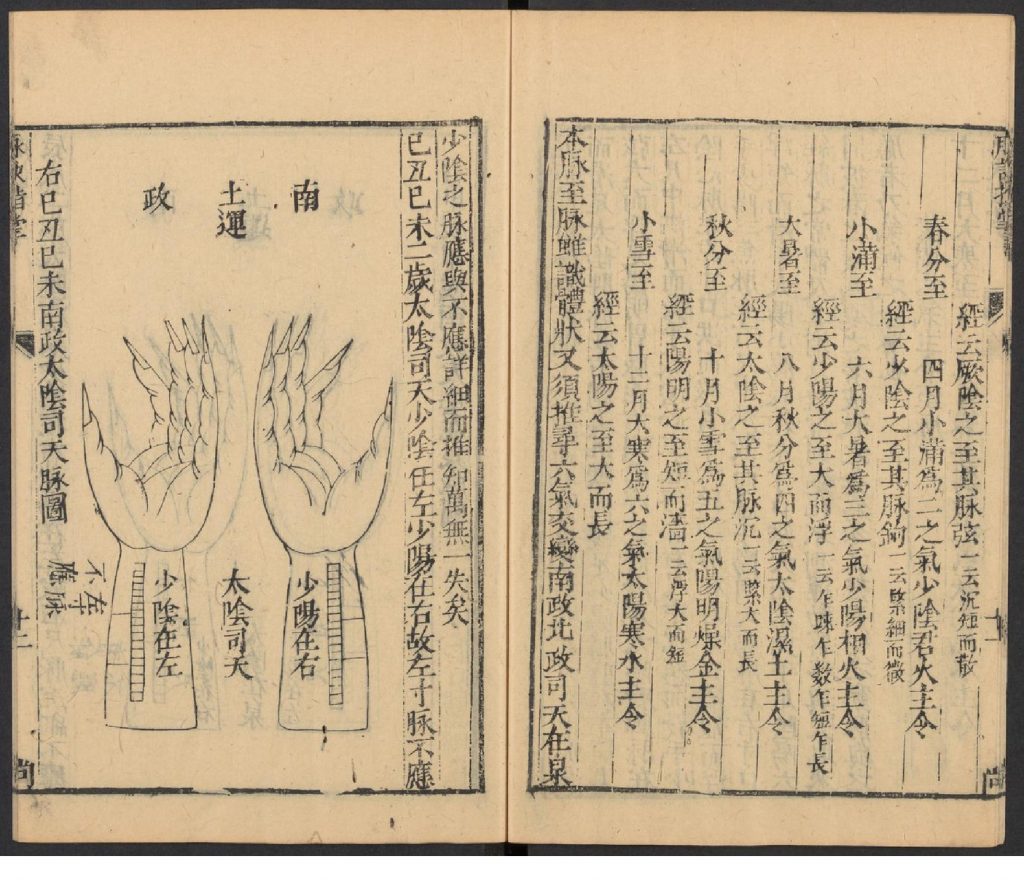 經云厥陰之至其脉弦一云沉短而散
春分至　四月小滿爲二之氣少陰君火主令
經云少陰之至其脉鈎一云緊細而微
小滿至　六月大暑爲三之氣少陽相火主令
經云少陽之至大而浮一云乍踈乍數乍短乍長
大暑至　八月秋分爲四之氣太陰濕土主令
經云太陰之至其脉沉一云緊大而長
秋分至　十月小雪爲五之氣陽明燥金主令
經云陽明之至短而濇一云浮大而短
小雪至　十二月大寒爲六之氣太陽寒水主令
經云太陽之至大而長
本脉至脉雖識體狀又須推尋六氣交變南政北政司天在泉
少陰之脉應與不應詳細而推知萬無一失矣
己丑己未二歲太陰司天少陰在左少陽在右故左寸脉不應
南
土運
政
少陽在右
太陰司天
少陰在左
左寸
不應脉
右己丑己未南政太陰司天脉圖
十二
尚